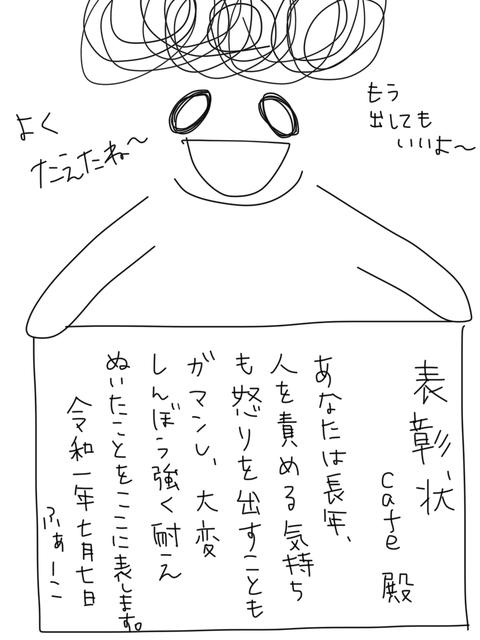 よく
たえたね〜
もう
出しても
いいよ〜
表彰状
cafe 殿
あなたは長年、
人を責める気持ち
も怒りを出すことも
ガマンし、大変
しんぼう強く耐え
ぬいたことをここに表します。
令和一年七月七日
ふぁーこ